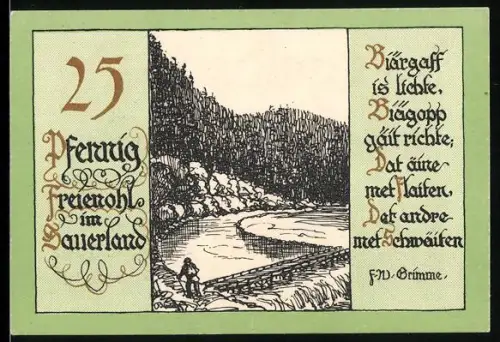 25
Pfennig
Freienohl
im
Sauerland
Biärgaff
is lichte,
Biärgopp
gäit richte;
Dat äine
met Flaiten,
Det andre
met Schwäiten
F.W. Grimme.